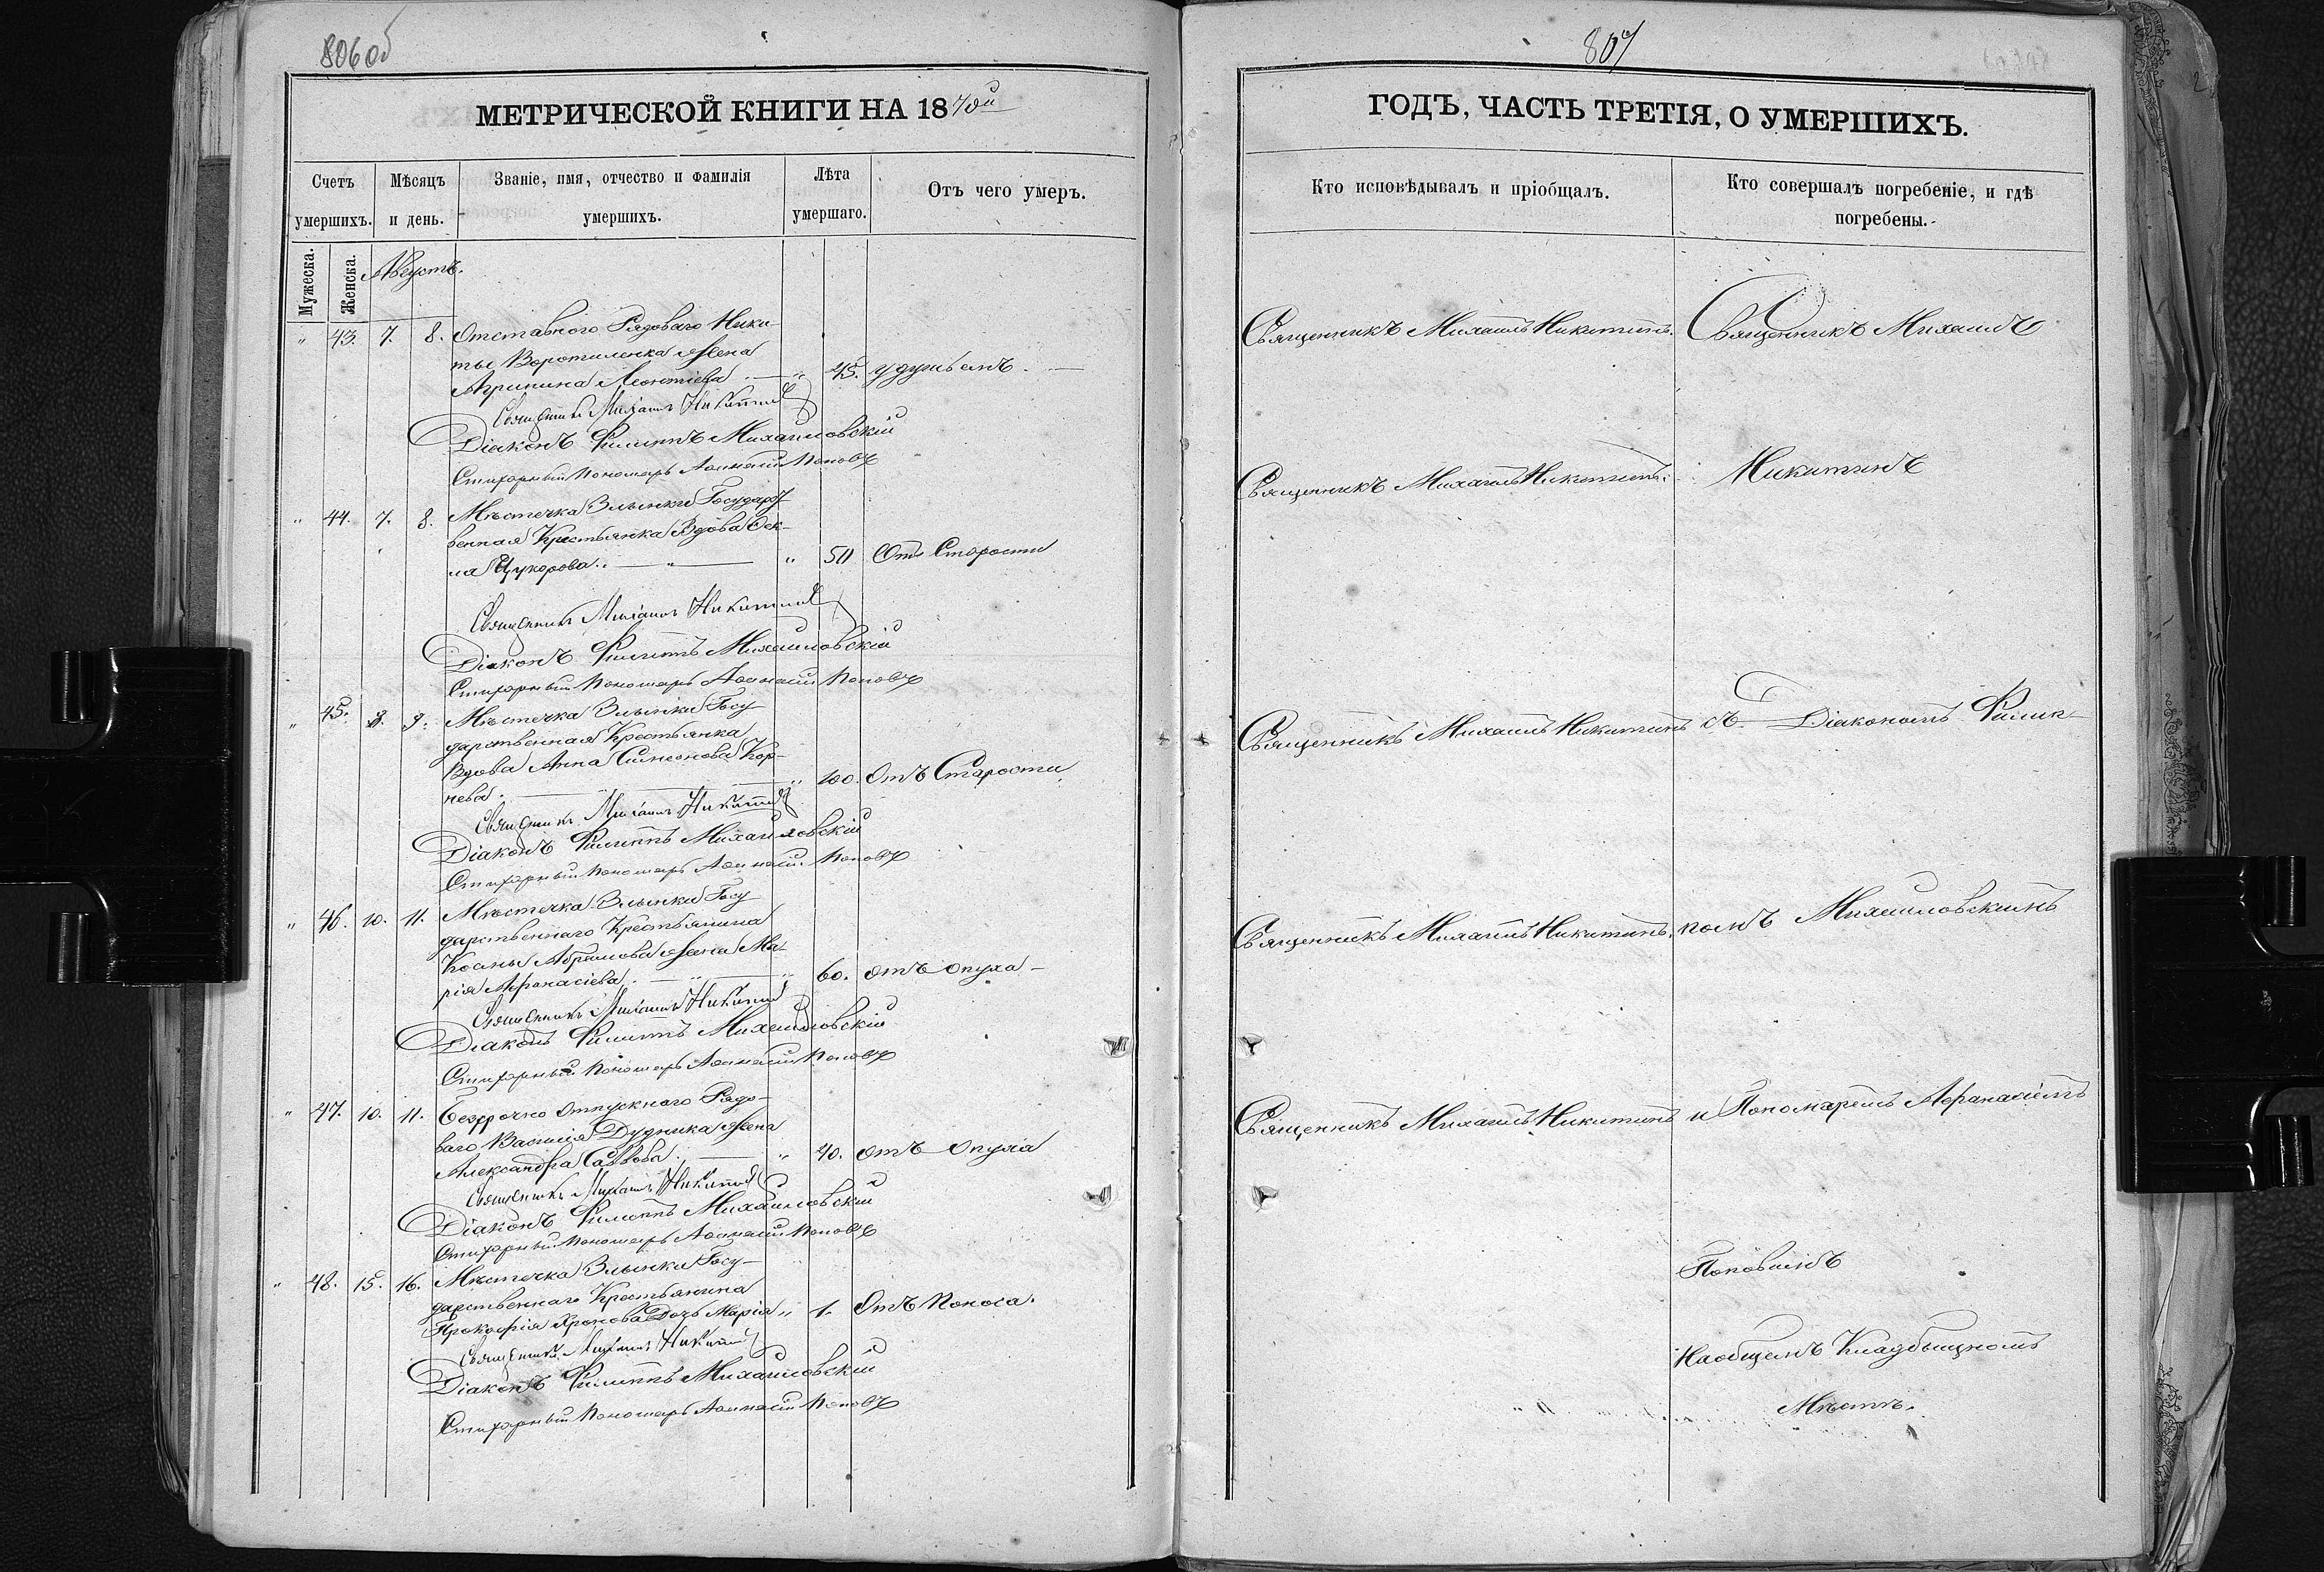 806об
МЕТРИЧЕСКОЙ КНИГИ НА 1870й
Счетъ умершихъ.
Мѣсяцъ и день.
Званіе, имя, отчество и фамилія умершихъ.
Лѣта умершаго.
Отъ чего умеръ.
Мужеска.
Женска.
Августъ.
" 43. 7. 8. Отставного Рядоваго Ники-
ты Воротиленка жена
Агрипина Леонтіева. — " 45. удушьемъ. —
Священникъ Михаилъ Никитинъ
Діаконъ Филиппъ Михайловскій
Стихарный Пономарь Аѳанасій Поповъ
" 44. 7. 8. Мѣстечка Злынки Государст
венная Крестьянка Вдова Фек-
ла Цукорова. — " — " 50 Отъ Старости
Священникъ Михаилъ Никитинъ
Діаконъ Филиппъ Михайловскій
Стихарный Пономарь Аѳанасій Поповъ
" 45. 8. 9. Мѣстечка Злынки Госу
дарственная Крестьянка
Вдова Анна Симеонова Кор-
нева. — " 100. Отъ Старости
Священникъ Михаилъ Никитинъ
Діаконъ Филиппъ Михайловскій
Стихарный Пономарь Аѳанасій Поповъ
" 46. 10. 11. Мѣстечка Злынки Госу
дарственнаго Крестьянина
Косьмы Абрамова жена Ма-
рія Афанасіева. — " — " 60. отъ опуха —
Священникъ Михаилъ Никитинъ
Діаконъ Филиппъ Михайловскій
Стихарный Пономарь Аѳанасій Поповъ
" 47. 10. 11. Безсрочно отпускнаго Рядо-
ваго Василія Дудника жена
Александра Саввова. — " 40. отъ опуха
Священникъ Михаилъ Никитинъ
Діаконъ Филиппъ Михайловскій
Стихарный Пономарь Аѳанасій Поповъ
" 48. 15. 16. Мѣстечка Злынки Госу-
дарственнаго Крестьянина
Прокофія Дочь Марія " 1. Отъ Поноса.
Священникъ Михаилъ Никитинъ
Діаконъ Филиппъ Михайловскій
Стихарный Пономарь Аѳанасій Поповъ
807
ГОДЪ, ЧАСТЬ ТРЕТІЯ, О УМЕРШИХЪ.
Кто исповѣдывалъ и пріобщалъ.
Кто совершалъ погребеніе, и гдѣ
погребены.
Священникъ Михаилъ Никитинъ. Священникъ Михаилъ
Священникъ Михаилъ Никитинъ. Никитинъ
Священникъ Михаилъ Никитинъ съ Діакономъ Филип-
Священникъ Михаилъ Никитинъ. помъ Михайловскимъ
Священникъ Михаилъ Никитинъ и Пономаремъ Афанасіемъ
Поповымъ
На общемъ Кладбищномъ
Мѣстѣ.